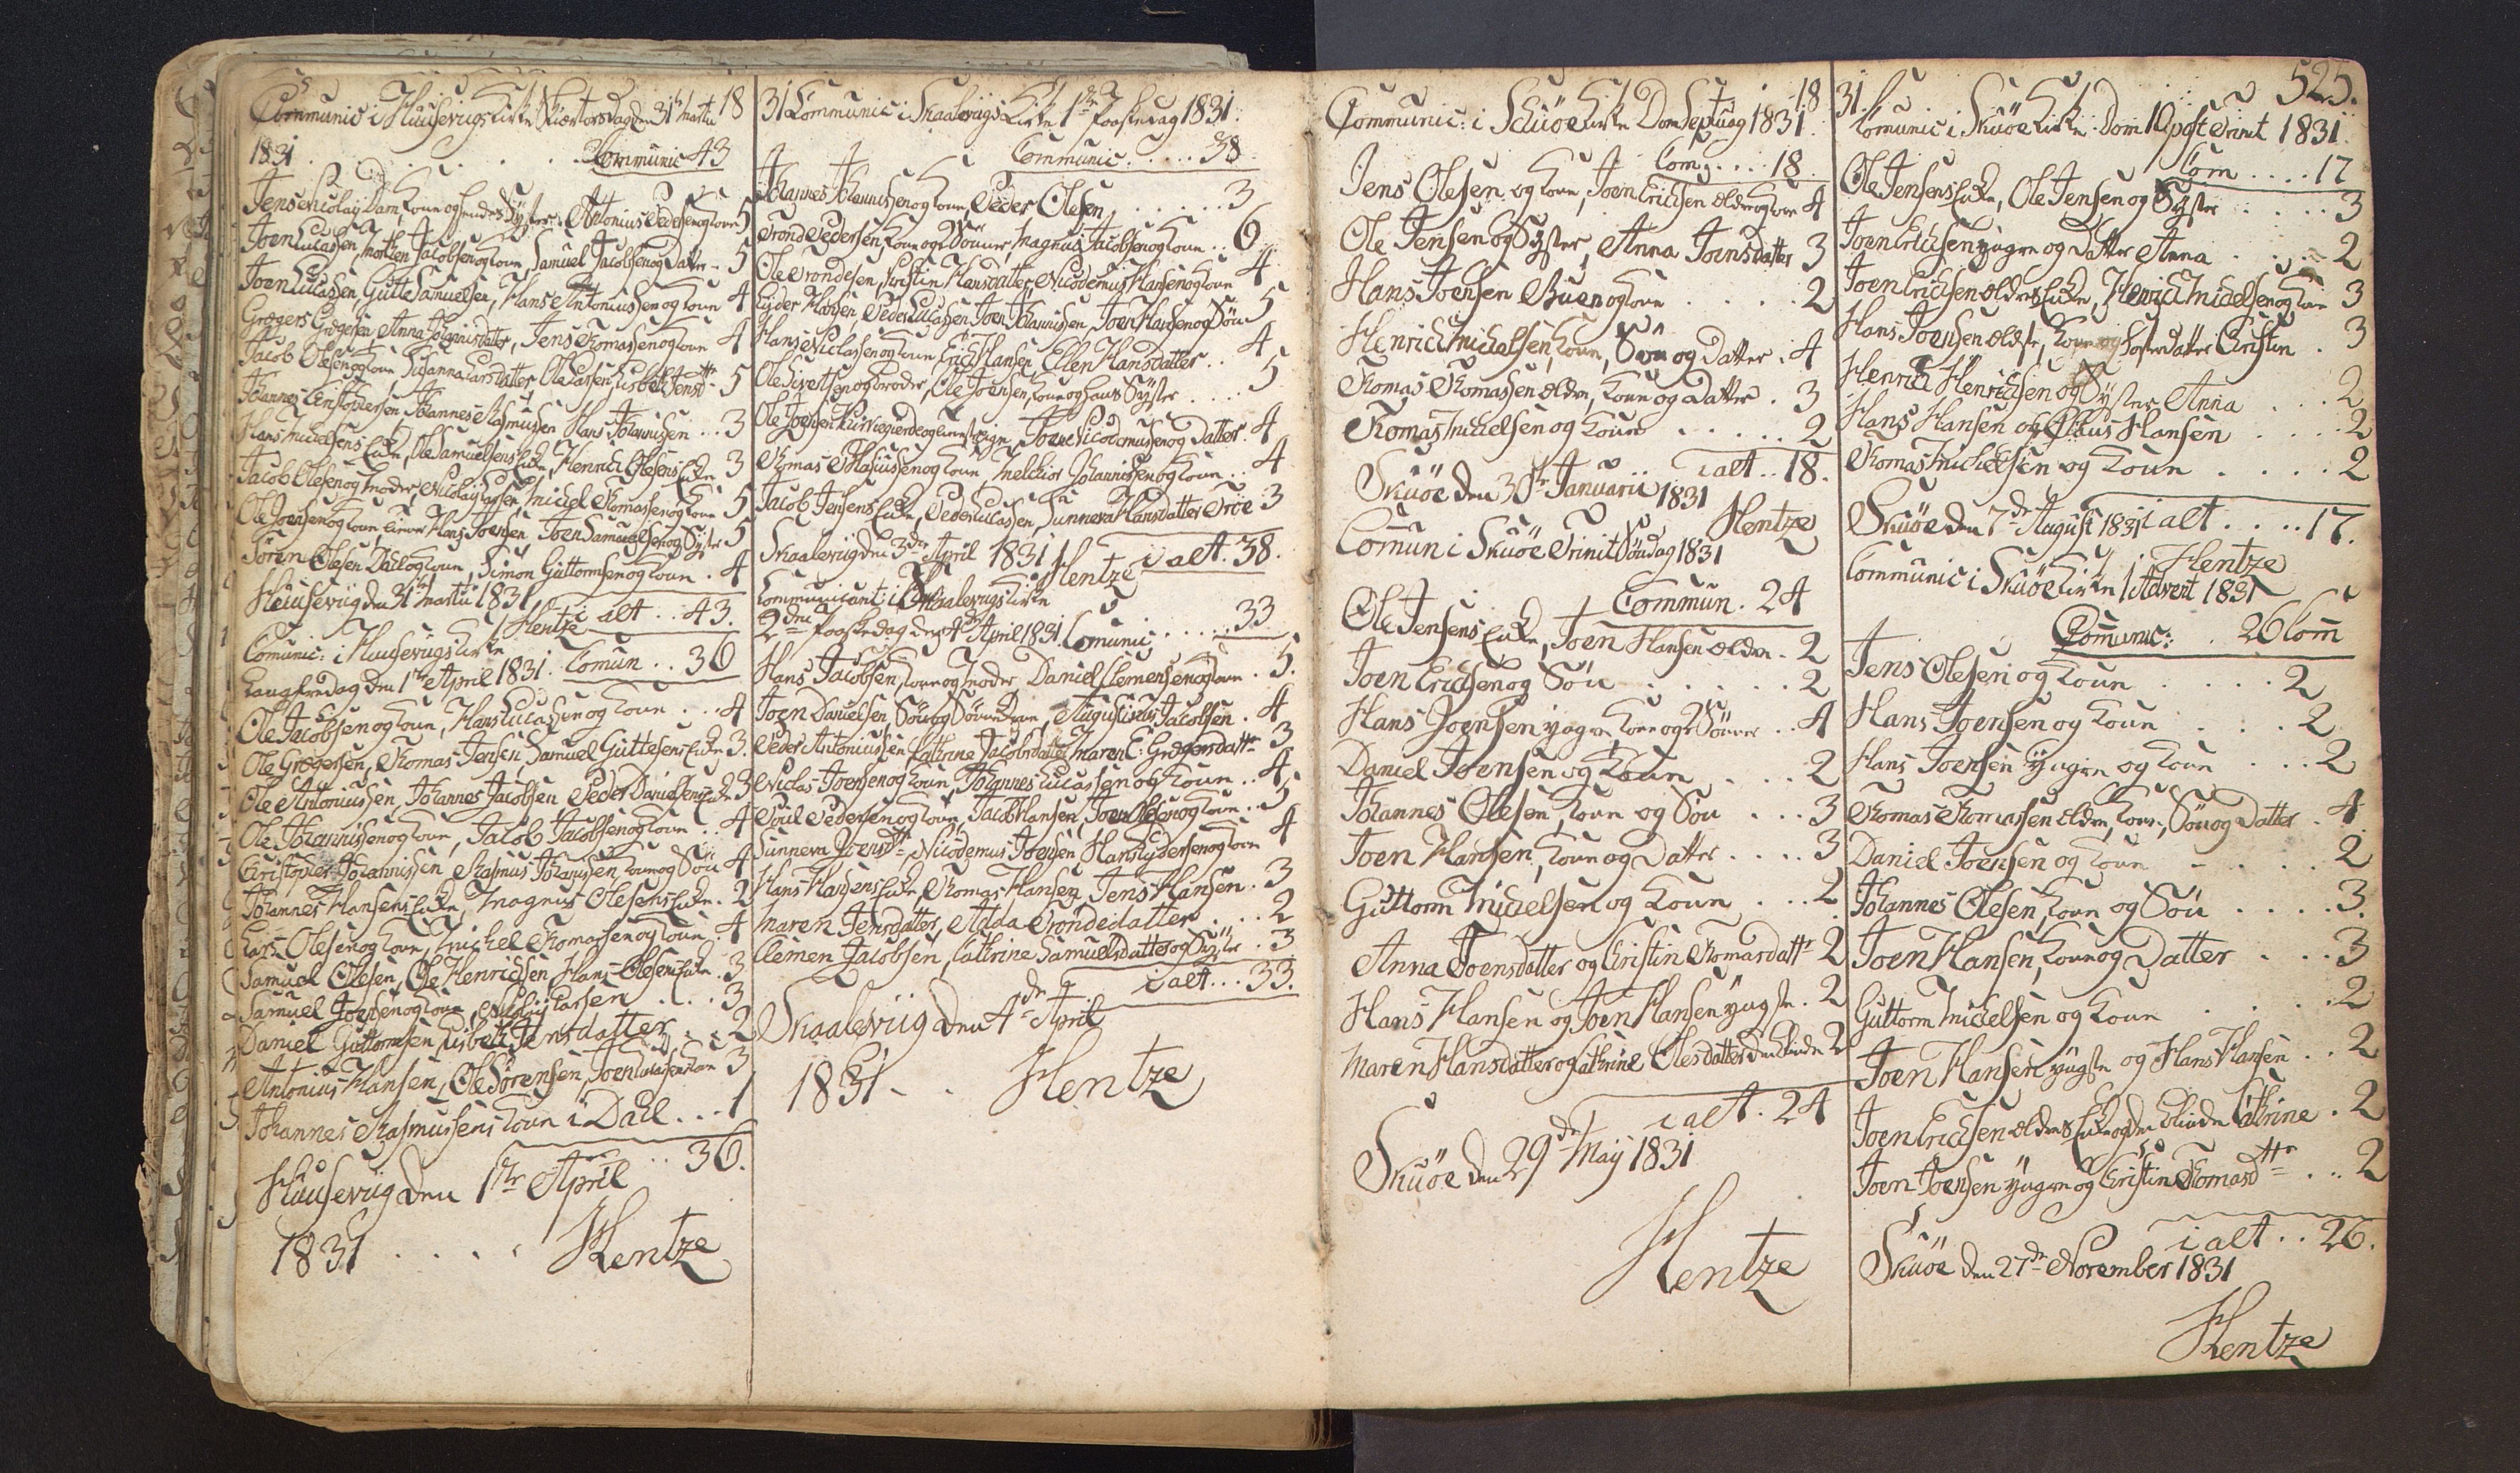 Communic i Huusevigs Kirke Skiærtorsdag den 31te Martii 18
1831 . . . . . . Communic 43
Jens Nicolay Dam, Kone og hendes Syster, Antonius Pedersen og Kone 5
Joen Lucassen, Morten Jacobsen og Kone, Samuel Jacobsen og Datter - 5
Joen Lucassen, Gutte Samuelsen, Hans Antoniussen og Kone 4
Grægers Grægersen, Anna Johannisdatter, Jens Thomassen og Kone 4
Jacob Olesen og Kone, Susanna Larsdatter, Ole Larsen, Lisbeth Jensdttr 5
Johannes Christophersen, Johannes Rasmussen, Hans Johannissen . . 3
Hans Michelsens Enke, Ole Samuelsens Enke, Henrich Olesens Enke 3
Jacob Olesen og Moder, Nicolay Larsen, Michel Thomassen og Kone 5
Ole Joensen og Kone, Hans Joensen, Joen Samuelsen og Syster 5
Sören Olesen Dahl og Kone, Simon Guttormsen og Kone . 4
Huusevig den 31te Martii 1831 i alt . . 43.
Hentze
Comunic: i Huusevigs Kirke
Langfredag den 1ste April 1831. Comun . . 36
Ole Jacobsen og Kone, Hans Lucassen og Kone . . . 4
Ole Grægersen, Thomas Jensen, Samuel Guttesens Enke 3.
Ole Antoniussen, Johannes Jacobsen, Peder Danielsens Enke 3
Ole Johannissen og Kone, Jacob Jacobsen og Kone . . 4
Christopher Johannissen, Rasmus Johannissen, Kone og Sön 4
Johannes Hansens Enke, Magnus Olesens Enke . 2
Lars Olesen og Kone, Michel Thomassen og Kone . 4
Samuel Olesen, Ole Henrichsen, Hans Olesens Enke . 3
Samuel Joensen og Kone, Nicolay Larsen . . . 3
Daniel Guttormsen, Lisbeth Jensdatter . . 2
Antonius Hansen, Ole Sörensen, Joen Lucassens Kone 3
Johannes Rasmussens Kone i Dahl . . . 1
Huusevig den 1ste April . . 36.
1831 . . . . Hentze
31 Communic i Skaalevigs Kirke 1ste Paaskedag 1831.
Communic . . . . . 38
Johannes Johannissen og Kone, Peder Olesen . . . . . 3
Trond Pedersen, Kone og 2 Sönner, Magnus Jacobsen og Kone . . 6
Ole Trondesen, Kristin Hansdatter, Nicodemus Hansen og Kone 4
Lyder Hansen, Peder Lucassen, Joen Johannissen, Joen Hansen og Sön 5
Hans Niclassen og Kone, Erich Hansen, Ellen Hansdatter . 4
Ole Sivertsen og Broder, Ole Joensen, Kone og Hans Syster . . . . 5
Ole Joensen, Joen Nicodemussen og Datter . 4
Thomas Thomassen og Kone, Melchior Johannissen og Kone . . 4
Jacob Jensens Enke, Peder Lucassen, Sunneva Hansdatter 3
Skaalevig den 3die April 1831 i alt . 38.
Hentze
Communicant: i Skaalevigs Kirke
2den Paaskedag den 4de April 1831. Comunic . . . . . 33
Hans Jacobsen, Kone og Moder, Daniel Clemensen og Kone . 5.
Joen Danielsen, Sön og Sönnekone, Augustinus Jacobsen . 4
Peder Antoniussen, Cathrine Jacobsdatter, Maren E: Grægersdattr 3
Niclas Joensen og Kone, Johannes Lucassen og Kone . . 4.
Poul Pedersen og Kone, Jacob Hansen, Joen Olesen og Kone . . 5
Sunneva Joensdtr, Nicodemus Joensen, Hans Lydersen og Kone 4
Hans Hansens Enke, Thomas Hansen, Jens Hansen . 3
Maren Jensdatter, Adda Trondedatter . . . 2
Clemen Jacobsen, Cathrine Samuelsdatter og Syster . 3
i alt . . . 33.
Skaalevig den 4de April
1831 - . Hentze
18
Communic: i Schuöe Kirke Dom Septuag 1831.
Com: . . . 18.
Jens Olesen og Kone, Joen Erichsen ældre og Kone 4
Ole Jensen og Syster, Anna Joensdatter 3
Hans Joensen Buen og Kone . . . . 2
Henrich Michelsen, Kone, Sön og Datter . 4
Thomas Thomassen ældre, Kone og Datter . 3
Thomas Michelsen og Kone . . . . . 2
i alt . . 18.
Skuöe den 30te Januarii 1831
Hentze
Comun i Skuöe Trinit Söndag 1831
Commun . 24
Ole Jensens Enke, Joen Hansen ældre - 2
Joen Erichsen og Sön . . . . . 2
Hans Joensen yngre, Kone og 2 Sönner . . 4
Daniel Joensen og Kone . . . . 2
Johannes Olesen, Kone og Sön . . . 3
Joen Hansen, Kone og Datter . . . . 3
Guttorm Michelsen og Kone . . . 2
Anna Joensdatter og Christin Thomasdattr 2
Hans Hansen og Joen Hansen yngste . 2
Maren Hansdatter og Cathrine Olesdatter den blinde 2
i alt . 24
Skuöe den 29de May 1831
Hentze
525.
31. Comunic i Skuöe Kirke Dom 10 post Trinit 1831.
Com . . . . 17
Ole Jensens Enke, Ole Jensen og Syster . . . . . 3
Joen Erichsen yngre og Datter Anna . . . 2
Joen Erichsen ældres Enke, Henrich Michelsen og Kone 3
Hans Joensen ældste, Kone og Fosterdatter Christin . 3
Henrich Henrichsen og Syster Anna . . . 2
Hans Hansen og Claus Hansen . . . . 2
Thomas Michelsen og Kone . . . . 2
Skuöe den 7de August 1831 i alt . . . . 17.
Hentze
Communic i Skuöe Kirke 1 Advent 1831
Comunic: . 26 Com
Jens Olesen og Kone . . . . 2
Hans Joensen og Kone . . . 2
Hans Joensen yngre og Kone . . . 2
Thomas Thomassen ældre, Kone, Sön og Datter . 4
Daniel Joensen og Kone - . . . . 2
Johannes Olesen, Kone og Sön . . . . 3.
Joen Hansen, Kone og Datter . . . 3
Guttorm Michelsen og Kone . . . . 2
Joen Hansen yngste og Hans Hansen . . 2
Joen Erichsen ældres Enke og den blinde Cathrine . 2
Joen Joensen yngre og Christin Thomasdttr . . . 2
i alt . . 26.
Skuöe den 27de November 1831
Hentze